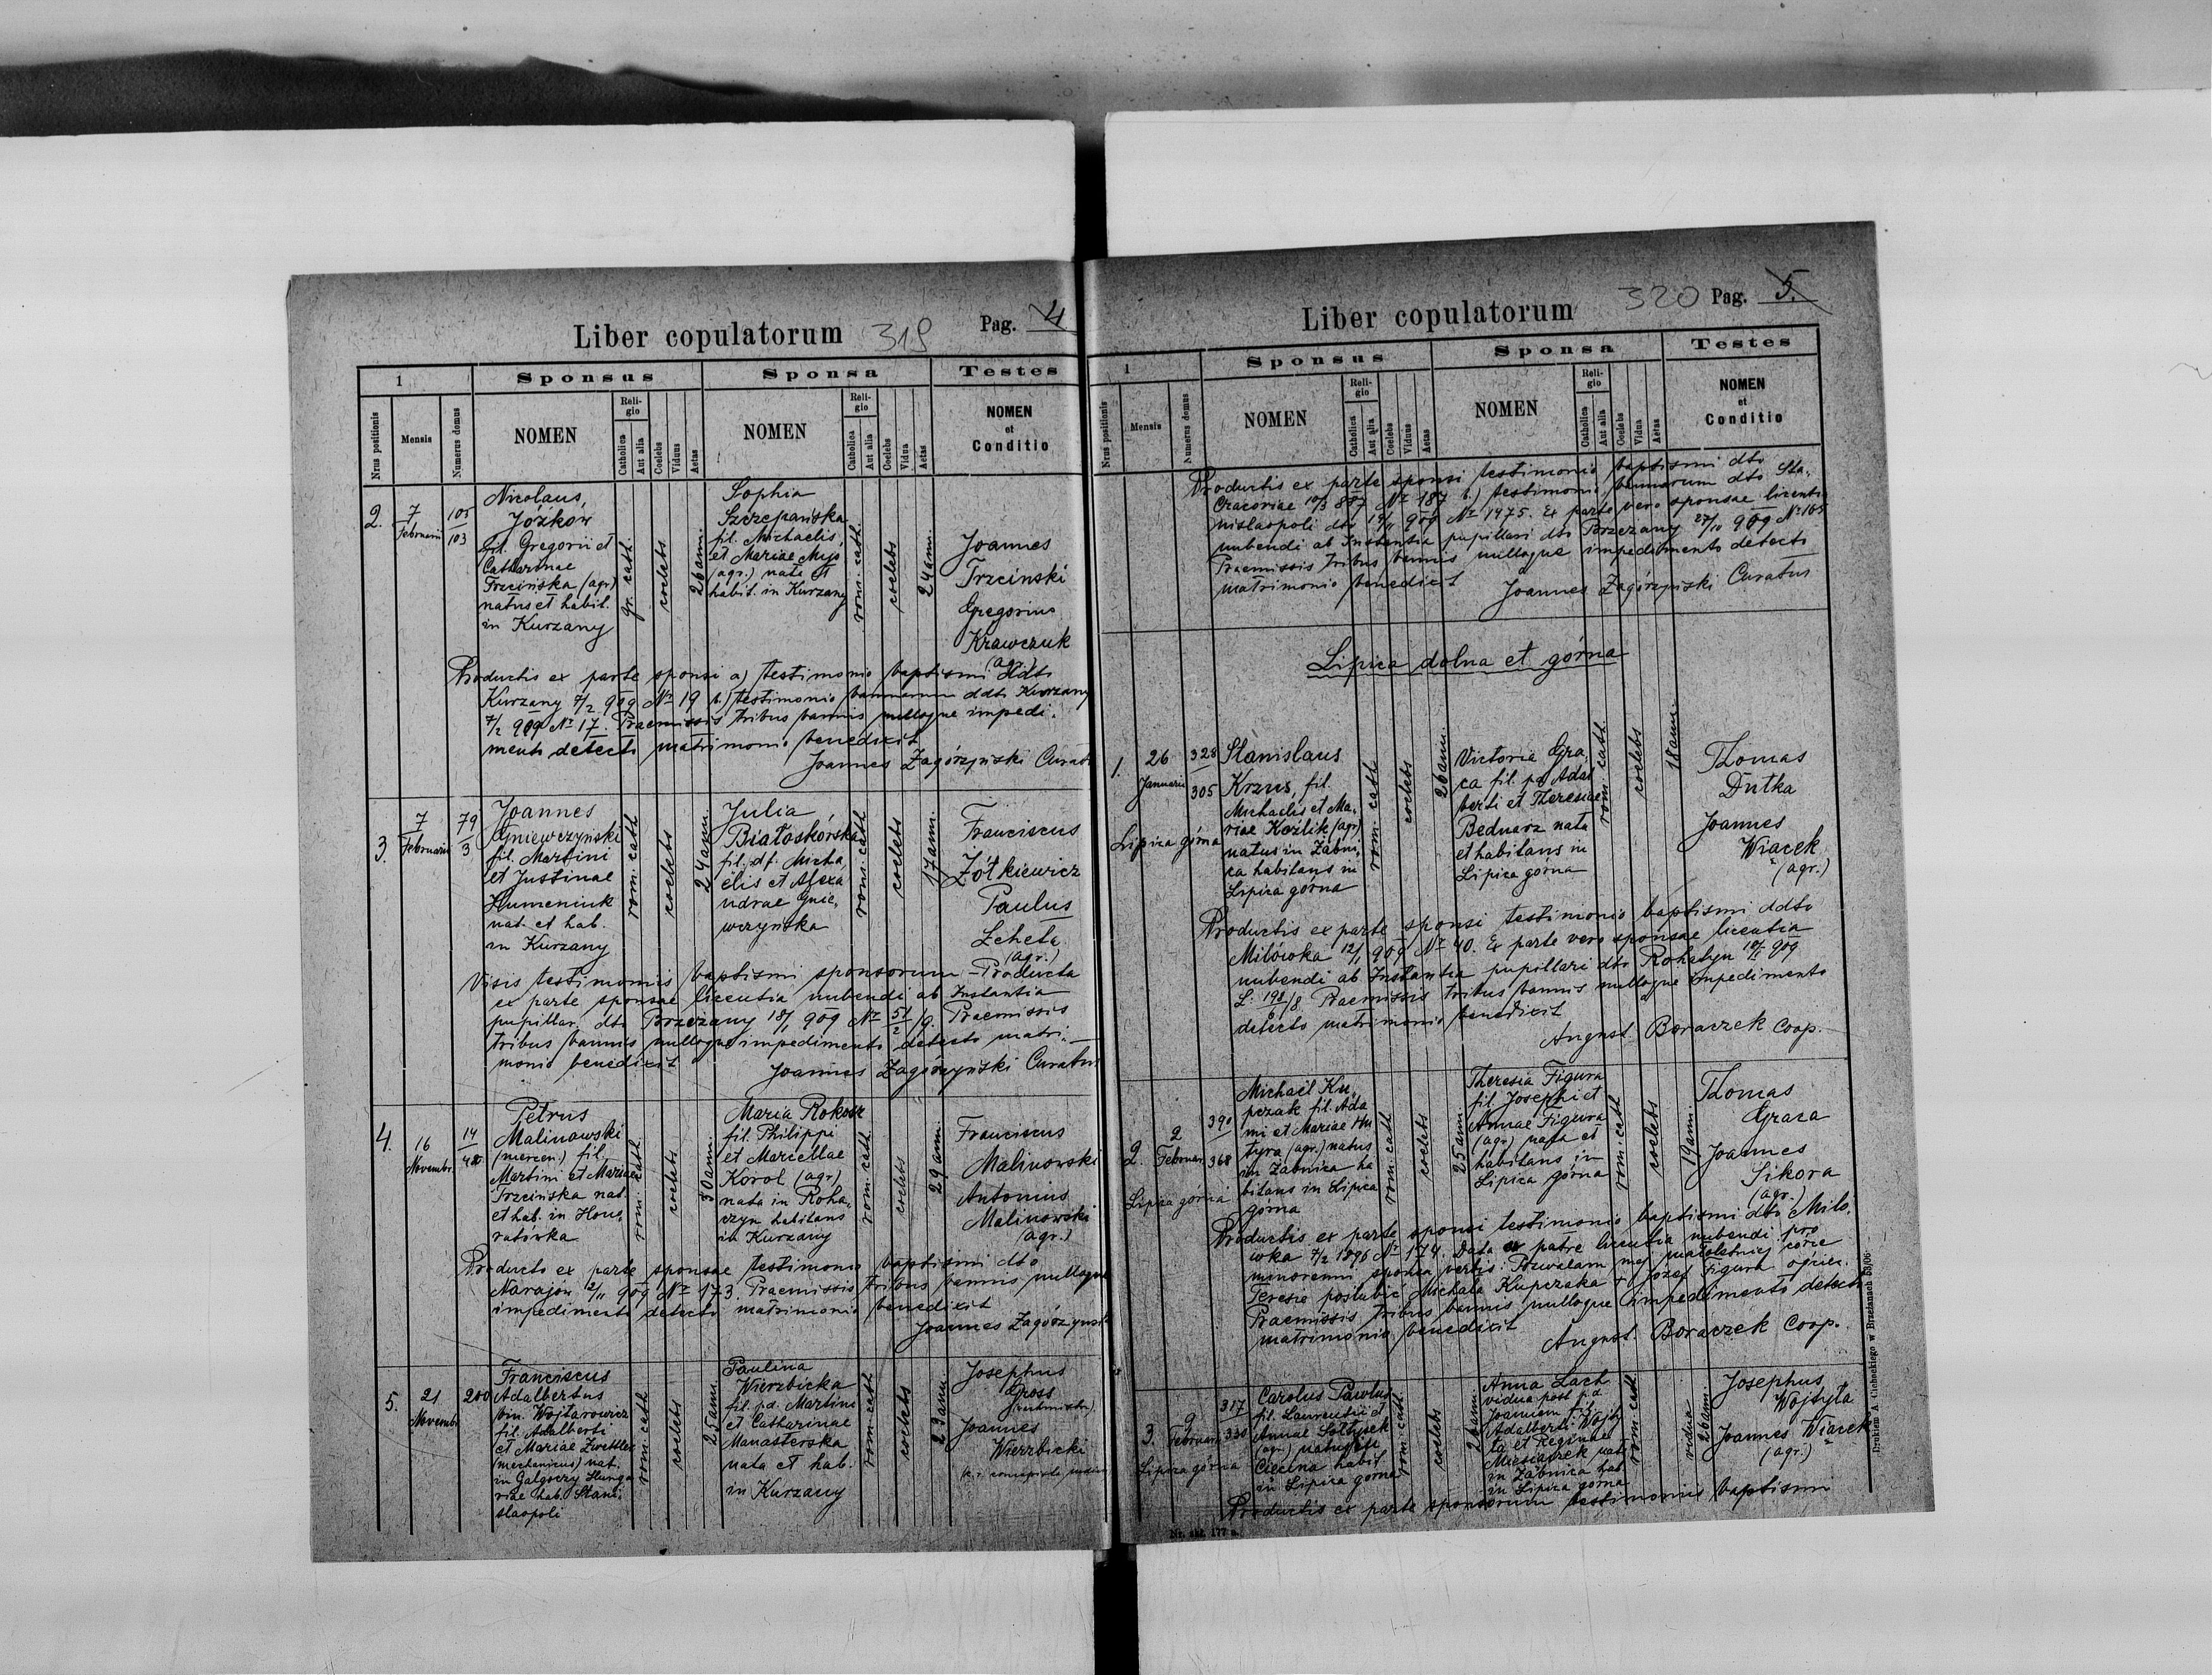 Liber copulatorum 319 Pag. 4
1
Sponsus
Sponsa
Testes
Nrus positionis
Mensis
Numerus domus
NOMEN
Religio
Catholica
Aut alia
Coelebs
Viduus
Aetas
NOMEN
Religio
Catholica
Aut alia
Coelebs
Vidua
Aetas
NOMEN
et
Conditio
2.
7
Februarii
105
103
Nicolaus,
Jóźków
fil. Gregorii et
Catharinae
Trzcińska (agr)
natus et habit.
in Kurzany
gr. cath.
coelebs
26 ann.
Sophia
Szczepańska
fil. Michaelis,
et Mariae Mys
(agr.) nata et
habit. in Kurzany
rom. cath.
coelebs
24 ann.
Joannes
Trzcinski
Gregorius
Krawczuk
(agr.)
Productis ex parte sponsi a) testimonio baptismi ddto
Kurzany 7/2 909 No 19 b.) testimonio bannorum ddto Kurzany
7/2 909 No 17. Praemissis tribus bannis nulloque impedi-
mento detecto matrimonio benedixit
Joannes Zagórzyński Curat
3.
7
Februarii
79
3
Joannes
Gniewczyński
fil. Martini
et Justinae
Humeniuk
nat. et hab.
in Kurzany
rom. cath
coelebs
24 ann.
Julia
Białoskórska
fil. df. Micha
elis et Alexa
ndrae Gnie,
wczyńska
rom. cath
coelebs
17 ann.
Franciscus
Żółkiewicz
Paulus
Leheta
(agr.)
Visis testimoniis baptismi sponsorum - Producta
ex parte sponsae licentia nubendi ab Instantia
pupillar. dto Brzeżany 18/1 909 No 51/2/9. Praemissis
tribus bannis nulloque impedimento detecto matri-
monio benedixit
Joannes Zagórzyński Curatus
4.
16
Novembr.
14
Petrus
Malinowski
(mercen.) fil.
Martini et Mariae
Trzcińska nat.
et hab. in Hono,
ratówka
rom. cath
coelebs
30 ann.
Maria Rokosz
fil. Philippi
et Marcellae
Korol (agr)
nata in Roha,
czyn habitans
in Kurzany
rom. cath.
coelebs
29 ann.
Franciscus
Malinowski
Antonius
Malinowski
(agr.)
Producto ex parte sponsae testimonio baptismi dto
Narajów 2/11 909 No 173. Praemissis tribus bannis nulloque
impedimento detecto matrimonio benedixit
Joannes Zagórzyński
5.
21
Novembr
200
Franciscus
Adalbertus
bin. Wojtarowicz
fil. Adalberti
et Mariae Zwettler
(mechanicus) nat.
in Galgoczy Hunga
riae hab. Stani,
slaopoli
rom. cath
coelebs
25 ann.
Paulina
Wierzbicka
fil. pd. Martini
et Catharinae
Manasterska
nata et hab.
in Kurzany
rom. cath
coelebs
23 ann.
Josephus
Gross
Joannes
Wierzbicki
Liber copulatorum 320 Pag. 5.
1
Sponsus
Sponsa
Testes
Nrus positionis
Mensis
Numerus domus
NOMEN
Religio
Catholica
Aut alia
Coelebs
Viduus
Aetas
NOMEN
Religio
Catholica
Aut alia
Coelebs
Vidua
Aetas
NOMEN
et
Conditio
Productis ex parte sponsi testimonio baptismi dto
Cracoviae 10/3 887 No 187 b.) testimonio bannorum dto Sta-
nislaopoli dto 19/11 909 No 1475. Ex parte vero sponsae licentia
nubendi ab Instantia pupillari dto Brzeżany 27/10 909 No 165
Praemissis tribus bannis nulloque impedimento detecto
matrimonio benedixit
Joannes Zagórzyński Curatus
Lipica dolna et górna
1.
26
Januarii
328
305
Lipica górna
Stanislaus
Krzus, fil.
Michaelis et Ma,
riae Koźlik (agr)
natus in Żabni,
ca habitans in
Lipica górna
rom. cath
coelebs
26 ann.
Victoria Gra,
ca fil. pd. Adal
berti et Theresiae
Bednarz nata
et habitans in
Lipica górna
rom. cath.
coelebs
18 ann.
Thomas
Dutka
Joannes
Wiącek
(agr.)
Productis ex parte sponsi testimonio baptismi ddto
Milówka 12/1 909 No 40. Ex parte vero sponsae licentia
nubendi ab Instantia pupillari dto Rohatyn 18/1 909
L. 198/6/8 Praemissis tribus bannis nulloque impedimento
detecto matrimonio benedixit
August. Boraczek Coop.
2.
2
Februar.
390
368
Lipica górna
Michael Ku,
pczak fil. Ada
mi et Mariae Hu
tyra (agr.) natus
in Żabnica ha
bitans in Lipica
górna
rom. cath
coelebs
25 ann.
Theresia Figura
fil. Josephi et
Annae Figura
(agr) nata et
habitans in
Lipica górna
rom. cath
coelebs
19 ann.
Thomas
Graca
Joannes
Sikora
(agr.)
Productis ex parte sponsi testimonio baptismi dto Miló,
wka 7/2 1896 No 174. Data ex patre licentia nubendi pro
minorenni sponsa verbis: Pozwalam mej małoletniej córce
Teresie poślubić Michała Kupczaka + Józef Figura ojciec.
Praemissis tribus bannis nulloque impedimento detecto
matrimonio benedixit
August. Boraczek Coop.
3.
9
Februar.
317
330
Lipica górna
Carolus Pawlus
fil. Laurentii et
Annae Sołtysek
(agr.) natus in
Ciecina habit
in Lipica górna
rom. cath
coelebs
26 ann.
Anna Lach
vidua post p.d.
Joannem fil.
Adalberti Wojty
ła et Reginae
Miesiączek nat
in Żabnica hab
in Lipica górna
rom. cath
vidua
26 ann.
Josephus
Wojtyła
Joannes Wiącek
(agr.)
Productis ex parte sponsorum testimoniis baptismi
Drukiem A. Cichockiego w Brzeżanach 53/06.